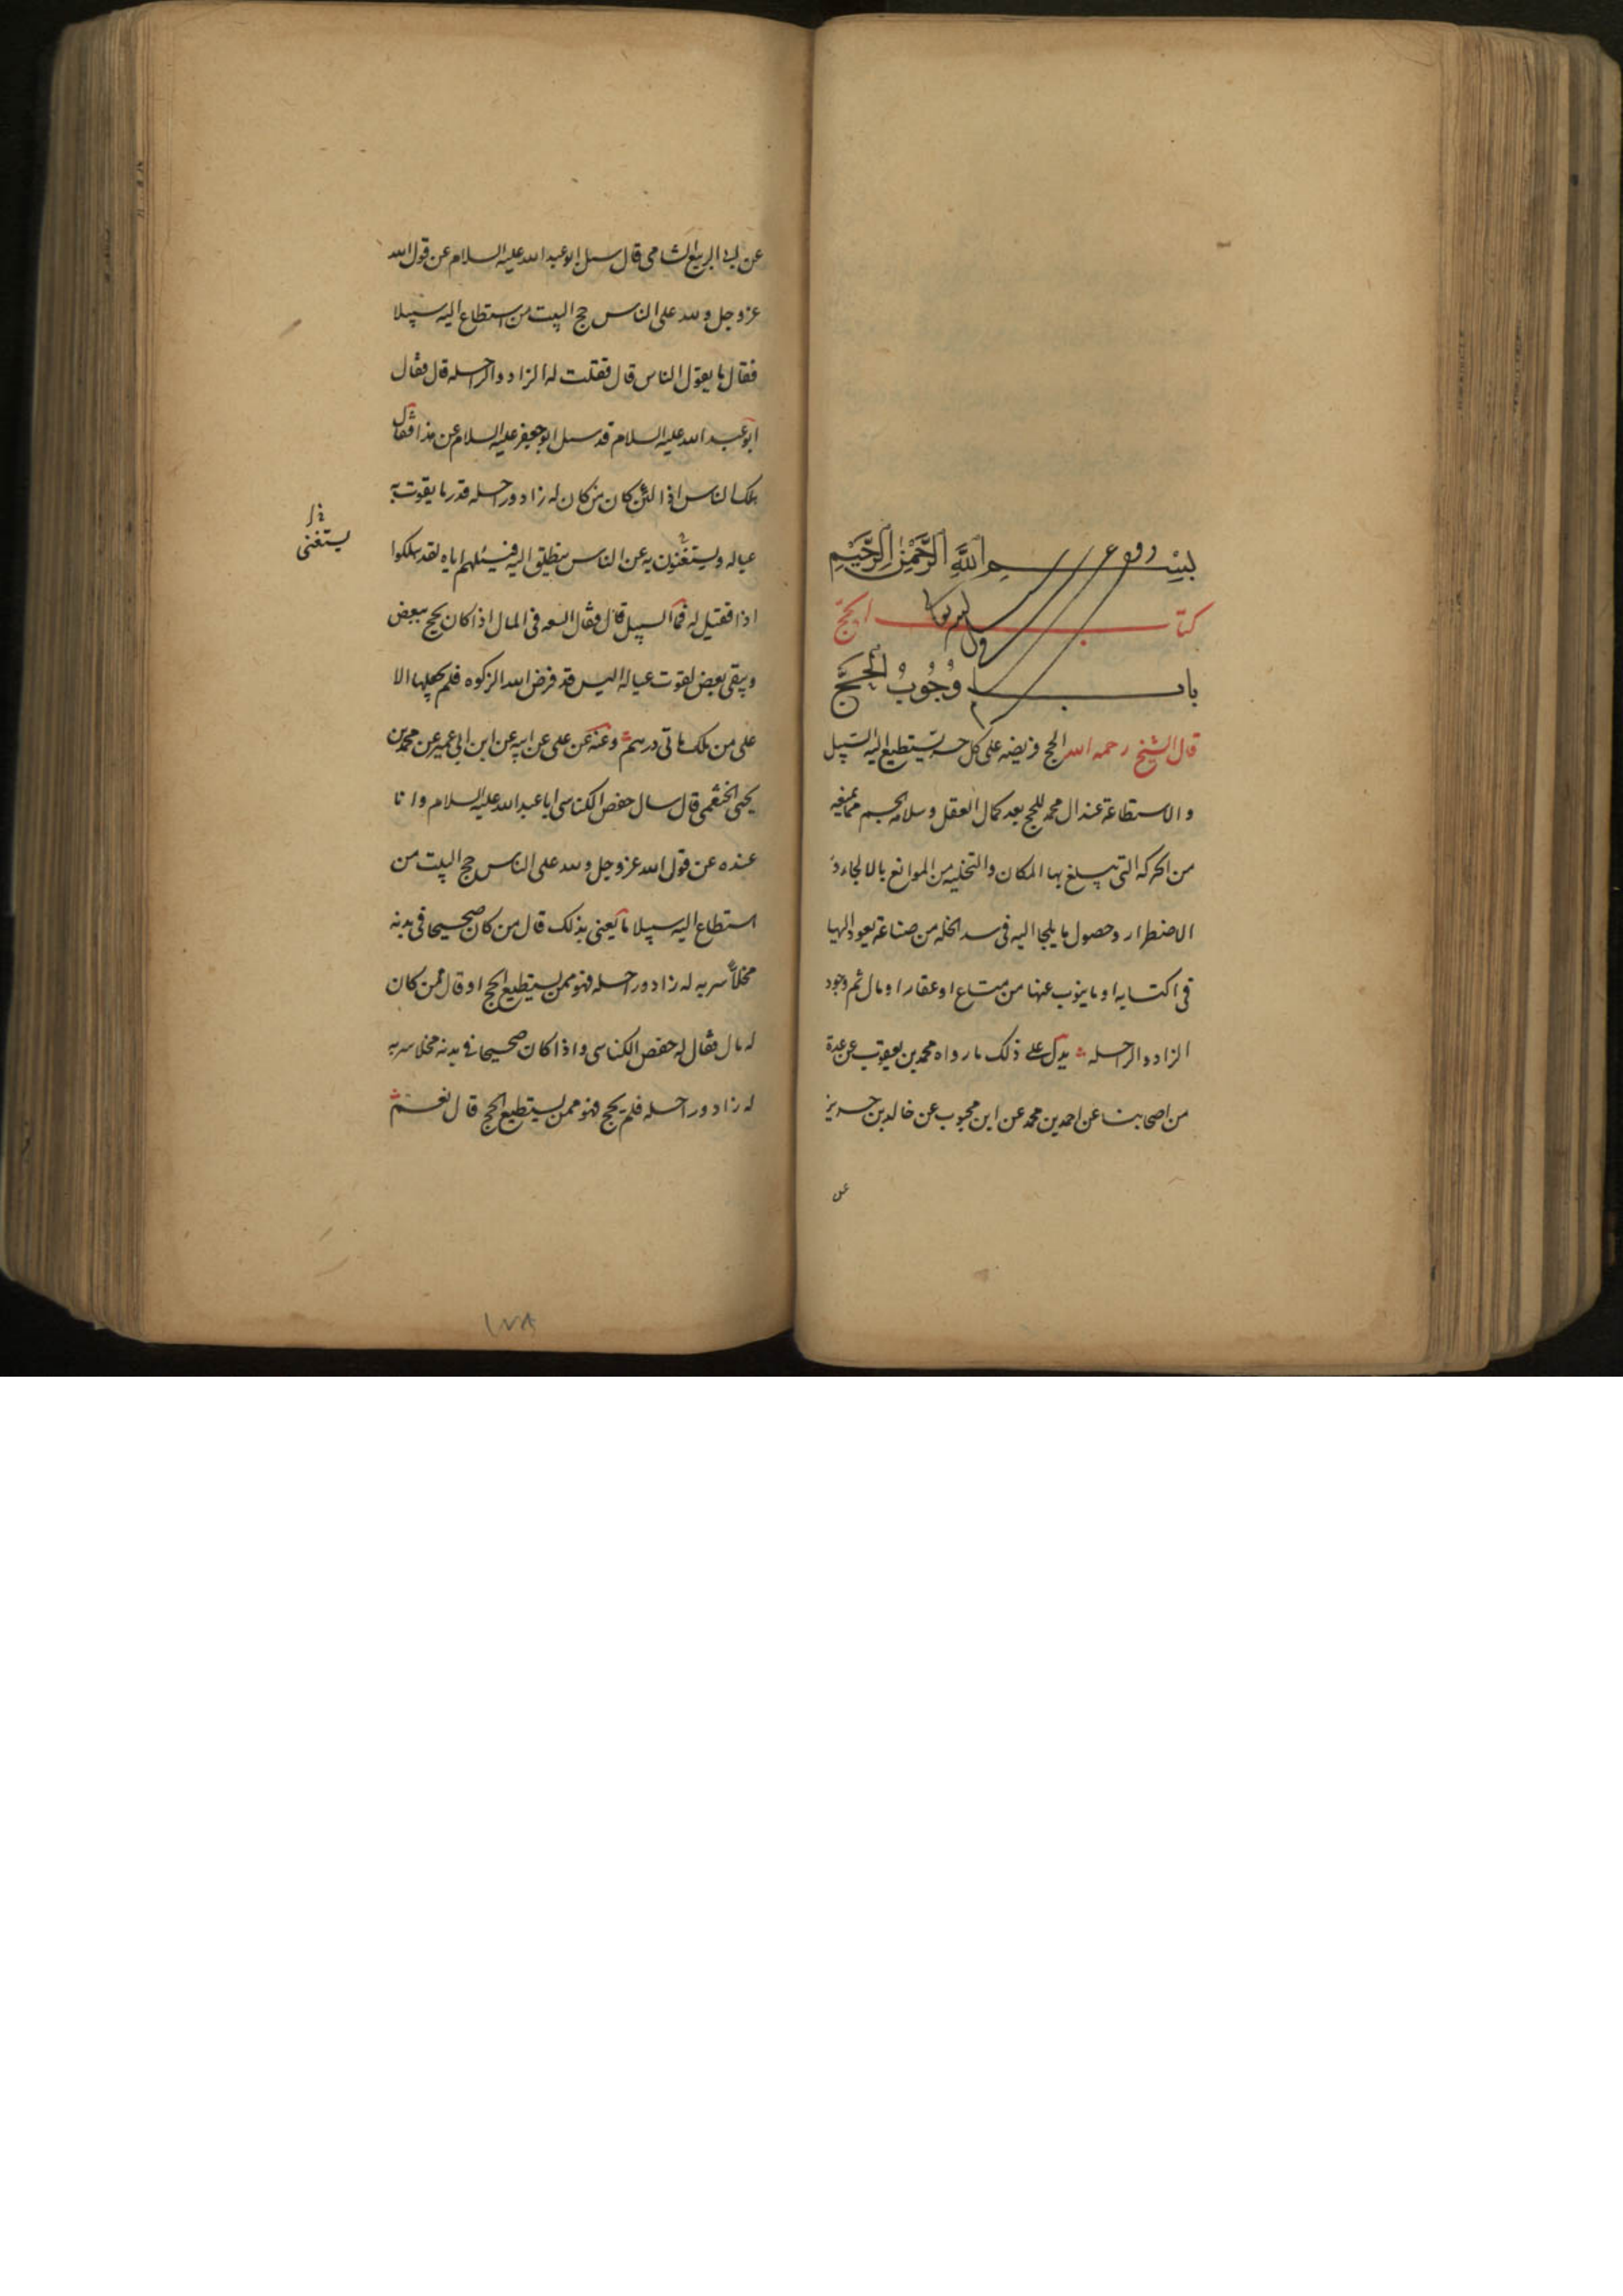 بسم الله الرحمن الرحيم
كتاب الحج
باب وجوب الحج
قال الشيخ رحمه الله الحج فريضه على كل حر يستطيع اليه السبيل
والاستطاعة عند ال محمد للحج بعد كمال العقل وسلامه الجسم مما يمنعه
من الحركه التى يبلغ بها المكان والتخليه من الموانع بالالجاء و
الاضطرار وحصول ما يلجا اليه فى سد الخله من صناعة يعود اليها
فى اكتسابه او ما ينوب عنها من متاع او عقار او مال ثم وجود
الزاد والراحله يدل على ذلك ما رواه محمد بن يعقوب عن عدة
من اصحابنا عن احمد بن محمد عن ابن محبوب عن خالد بن جرير
عن
عن ابى الربيع الشامى قال سئل ابو عبد الله عليه السلام عن قول الله
عز وجل ولله على الناس حج البيت من استطاع اليه سبيلا
فقال ما يقول الناس قال فقلت له الزاد والراحله قال فقال
ابو عبد الله عليه السلام قد سئل ابو جعفر عليه السلام عن هذا فقال
هلك الناس اذا لئن كان من كان له زاد وراحله قدر ما يقوت به
عياله ويستغنون به عن الناس ينطلق اليه فيسئلهم اياه لقد هلكوا
يستغنى
اذا فقيل له فما السبيل قال فقال السعه فى المال اذا كان يحج ببعض
ويبقى بعض لقوت عياله اليس قد فرض الله الزكوه فلم يجعلها الا
على من ملك مائى درهم وعنه عن على عن ابيه عن ابن ابى عمير عن محمد بن
يحيى الخثعمى قال سال حفص الكناسى ابا عبد الله عليه السلام وانا
عنده عن قول الله عز وجل ولله على الناس حج البيت من
استطاع اليه سبيلا ما يعنى بذلك قال من كان صحيحا فى بدنه
مخلا سربه له زاد وراحله فهو ممن يستطيع الحج او قال ممن كان
له مال فقال له حفص الكناسى واذا كان صحيحا فى بدنه مخلا سربه
له زاد وراحله فلم يحج فهو ممن يستطيع الحج قال نعم
١٧٨